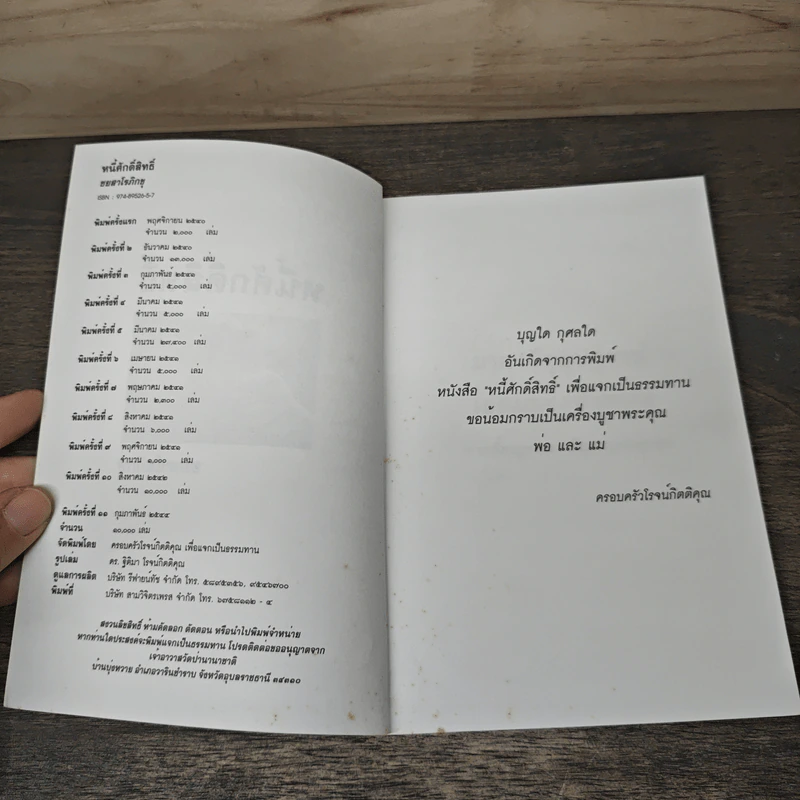 หนี้ศักดิ์สิทธิ์
ชยสาโรภิกขุ
ISBN : 974-89526-5-7
พิมพ์ครั้งแรก พฤศจิกายน ๒๕๔๐
จำนวน ๒,๐๐๐ เล่ม
พิมพ์ครั้งที่ ๒ ธันวาคม ๒๕๔๐
จำนวน ๑๓,๐๐๐ เล่ม
พิมพ์ครั้งที่ ๓ กุมภาพันธ์ ๒๕๔๑
จำนวน ๕,๐๐๐ เล่ม
พิมพ์ครั้งที่ ๔ มีนาคม ๒๕๔๑
จำนวน ๕,๐๐๐ เล่ม
พิมพ์ครั้งที่ ๕ มีนาคม ๒๕๔๑
จำนวน ๒๙,๔๐๐ เล่ม
พิมพ์ครั้งที่ ๖ เมษายน ๒๕๔๑
จำนวน ๕,๐๐๐ เล่ม
พิมพ์ครั้งที่ ๗ พฤษภาคม ๒๕๔๑
จำนวน ๒,๓๐๐ เล่ม
พิมพ์ครั้งที่ ๘ สิงหาคม ๒๕๔๑
จำนวน ๖,๐๐๐ เล่ม
พิมพ์ครั้งที่ ๙ พฤศจิกายน ๒๕๔๑
จำนวน ๑,๐๐๐ เล่ม
พิมพ์ครั้งที่ ๑๐ สิงหาคม ๒๕๔๒
จำนวน ๑๐,๐๐๐ เล่ม
พิมพ์ครั้งที่ ๑๑ กุมภาพันธ์ ๒๕๔๔
จำนวน ๑๐,๐๐๐ เล่ม
จัดพิมพ์โดย ครอบครัวโรจน์กิตติคุณ เพื่อแจกเป็นธรรมทาน
รูปเล่ม ดร. ฐิติมา โรจน์กิตติคุณ
ดูแลการผลิต บริษัท รีฟายน์ทัช จำกัด โทร. ๕๘๙๕๓๕๖, ๙๕๔๖๗๐๐
พิมพ์ที่ บริษัท สามวิจิตรเพรส จำกัด โทร. ๖๙๕๘๑๑๒ - ๔
สงวนลิขสิทธิ์ ห้ามคัดลอก ตัดตอน หรือนำไปพิมพ์จำหน่าย
หากท่านใดประสงค์จะพิมพ์แจกเป็นธรรมทาน โปรดติดต่อขออนุญาตจาก
เจ้าอาวาสวัดป่านานาชาติ
บ้านบุ่งหวาย อำเภอวารินชำราบ จังหวัดอุบลราชธานี ๓๔๓๑๐
บุญใด กุศลใด
อันเกิดจากการพิมพ์
หนังสือ "หนี้ศักดิ์สิทธิ์" เพื่อแจกเป็นธรรมทาน
ขอน้อมกราบเป็นเครื่องบูชาพระคุณ
พ่อ และ แม่
ครอบครัวโรจน์กิตติคุณ